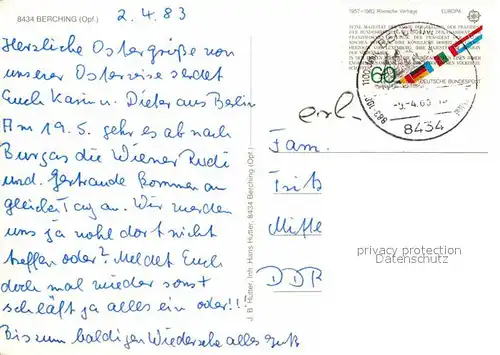 8434 BERCHING (Opf.)
2.4.83
Herzliche Ostergrüße von
unserer Osterreise sendet
Euch Karin u. Dieter aus Berlin
Am 19.5. geht es ab nach
Burgas die Wiener Rudi
und Gertraude kommen am
gleichen Tag an. Wir werden
uns ja wohl dort nicht
treffen oder? Meldet Euch
doch mal wieder sonst
schläft ja alles ein oder!!
Bis zum baldigen Wiedersehn alles Gute
J. B. Hutter, Inh. Hans Hutter, 8434 Berching (Opf.)
1957-1982 Römische Verträge EUROPA
60
DEUTSCHE BUNDESPOST
8434
erl.
Fam.
Fritz
Mitte
DDR
privacy protection
Datenschutz